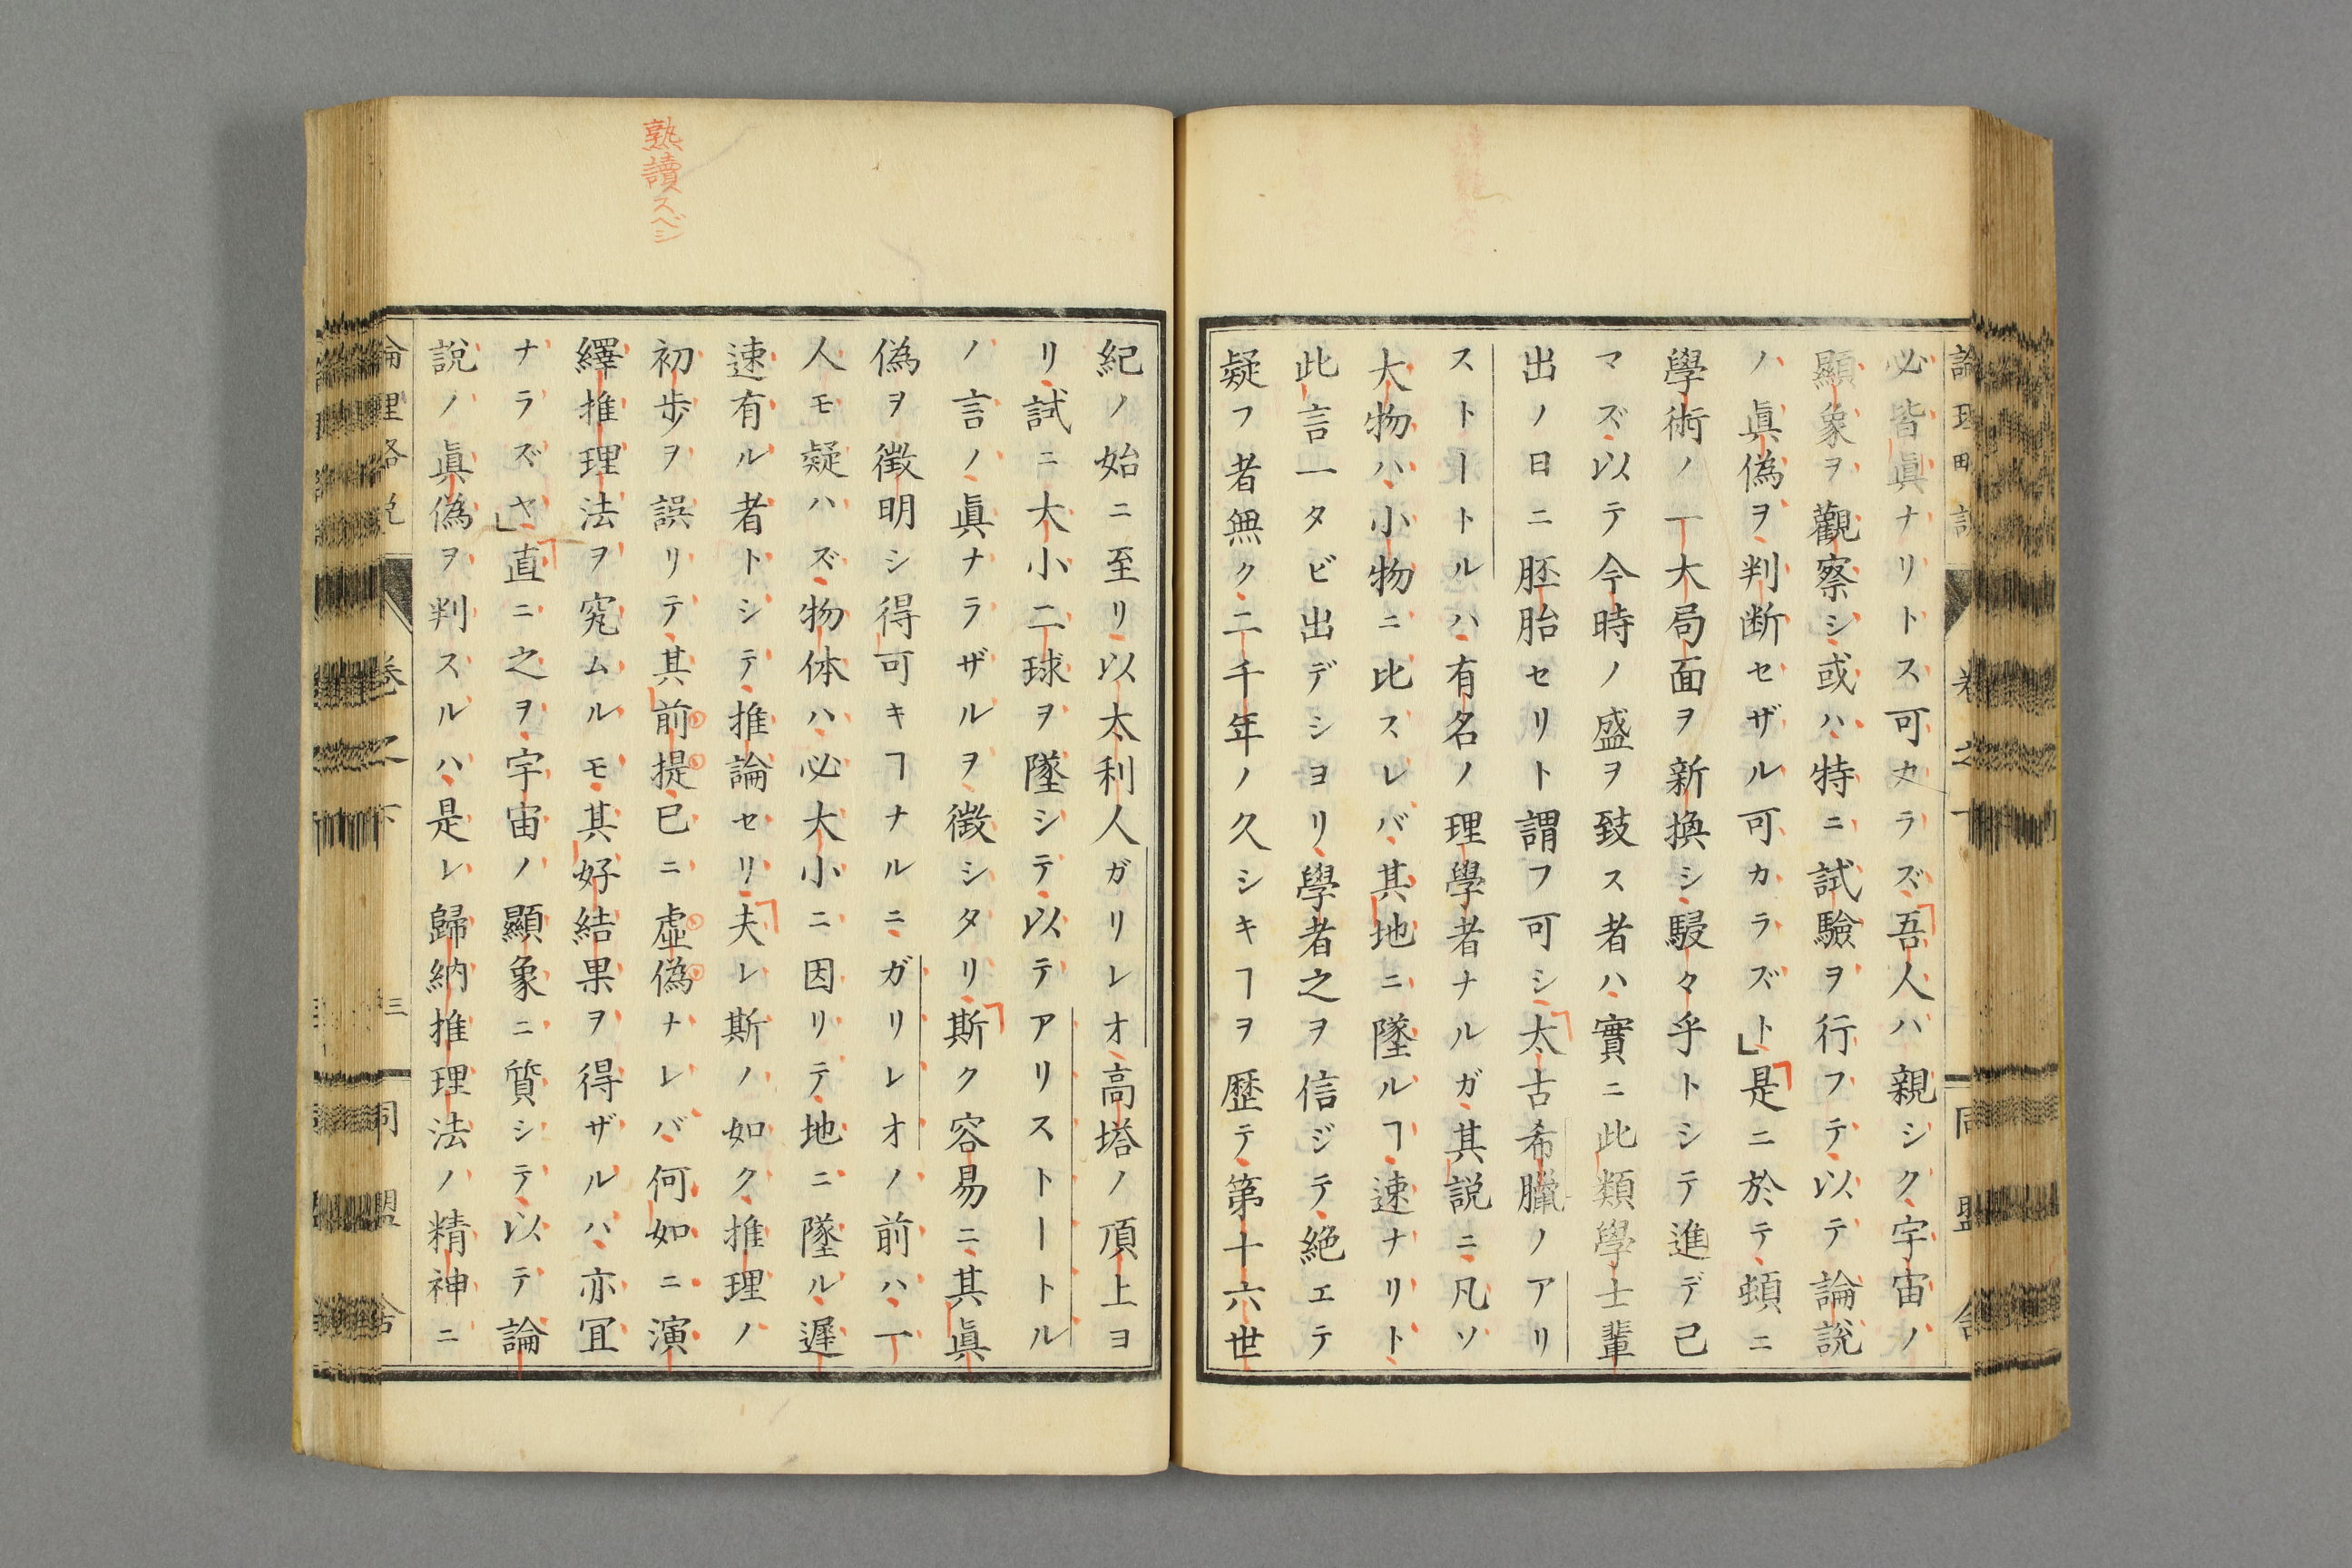 必皆眞ナリトス可カラズ吾人ハ親シク宇宙ノ
顯象ヲ觀察シ或ハ特ニ試驗ヲ行フテ以テ論説
ノ眞偽ヲ判断セザル可カラズト」是ニ於テ頓ニ
學術ノ一大局面ヲ新換シ駸々乎トシテ進デ己
マズ以テ今時ノ盛ヲ致ス者ハ實ニ此類學士輩
出ノ日ニ胚胎セリト謂フ可シ太古希臘ノアリ
ストートルハ有名ノ理學者ナルガ其説ニ凡ソ
大物ハ小物ニ比スレバ其地ニ墜ルヿ速ナリト
此言一タビ出デシヨリ學者之ヲ信ジテ絶エテ
疑フ者無ク二千年ノ久シキヿヲ歴テ第十六世
紀ノ始ニ至リ以太利人ガリレオ高塔ノ頂上ヨ
リ試ニ大小二球ヲ墜シテ以テアリストートル
ノ言ノ眞ナラザルヲ徴シタリ斯ク容易ニ其眞
偽ヲ徴明シ得可キヿナルニガリレオノ前ハ一
人モ疑ハズ物体ハ必大小ニ因リテ地ニ墜ル遲
速有ル者トシテ推論セリ夫レ斯ノ如ク推理ノ
初歩ヲ誤リテ其前提已ニ虚偽ナレバ何如ニ演
繹推理法ヲ究ムルモ其好結果ヲ得ザルハ亦冝
ナラズヤ」直ニ之ヲ宇宙ノ顯象ニ質シテ以テ論
説ノ眞偽ヲ判スルハ是レ歸納推理法ノ精神ニ
熟讀スベシ
卷之下
三
同盟舎